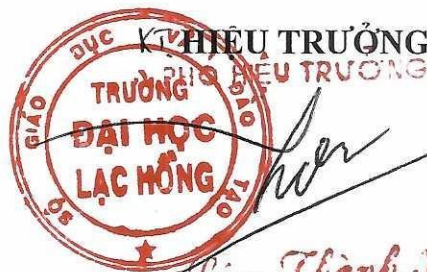 KT HIỆU TRƯỞNG
PHÓ HIỆU TRƯỞNG
SỞ GIÁO DỤC VÀ ĐÀO TẠO
TRƯỜNG
ĐẠI HỌC
LẠC HỒNG
Thành